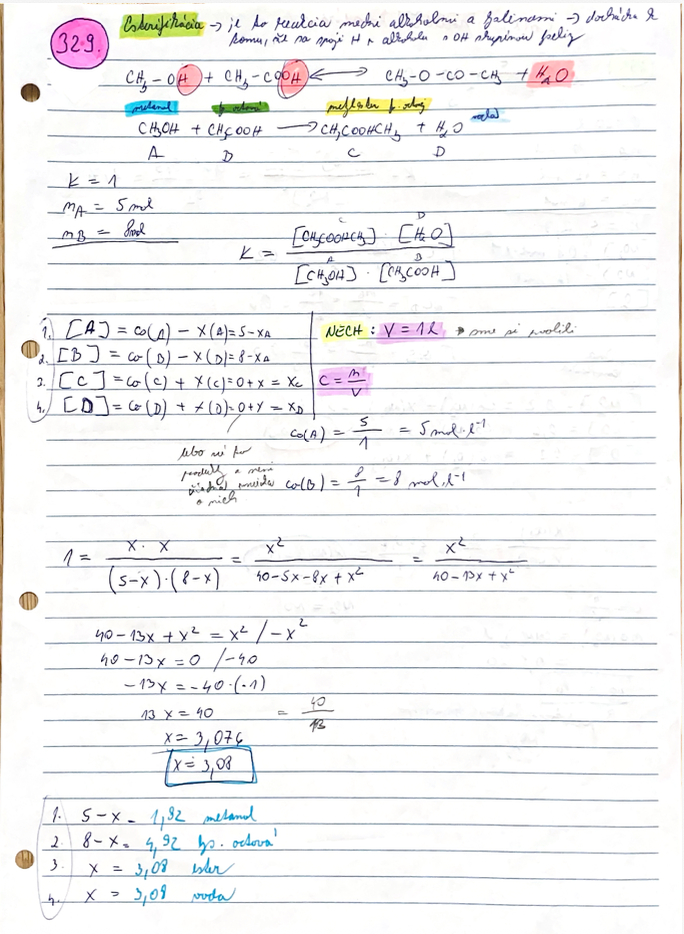 329.
Esterifikácia → je to reakcia medzi alkoholmi a kyselinami → dochádza k
tomu, že sa spojí H z alkoholu s OH skupinou kyseliny
CH₃ – OH + CH₃ – COOH ⟷ CH₃ – O – CO – CH₃ + H₂O
metanol k. octová metylester k. octovej voda
CH₃OH + CH₃COOH → CH₃COOHCH₃ + H₂O
A B C D
K = 1
nA = 5 mol
nB = 8 mol
K = [CH₃COOHCH₃] · [H₂O] / [CH₃OH] · [CH₃COOH]
C D
A B
1. [A] = co(A) – x(A) = 5 – xA
2. [B] = co(B) – x(B) = 8 – xA
3. [C] = co(C) + x(C) = 0 + x = xC
4. [D] = co(D) + x(D) = 0 + x = xD
NECH : V = 1 l → sme si zvolili
C = n/V
co(A) = 5/1 = 5 mol·l⁻¹
co(B) = 8/1 = 8 mol·l⁻¹
lebo sú to
produkty a nemáme
o nich
1 = x · x / (5 – x) · (8 – x) = x² / 40 – 5x – 8x + x² = x² / 40 – 13x + x²
40 – 13x + x² = x² / – x²
40 – 13x = 0 / –40
– 13x = –40 · (–1)
13x = 40 = 40/13
x = 3,076
x = 3,08
1. 5 – x = 1,92 metanol
2. 8 – x = 4,92 k. octová
3. x = 3,08 ester
4. x = 3,08 voda